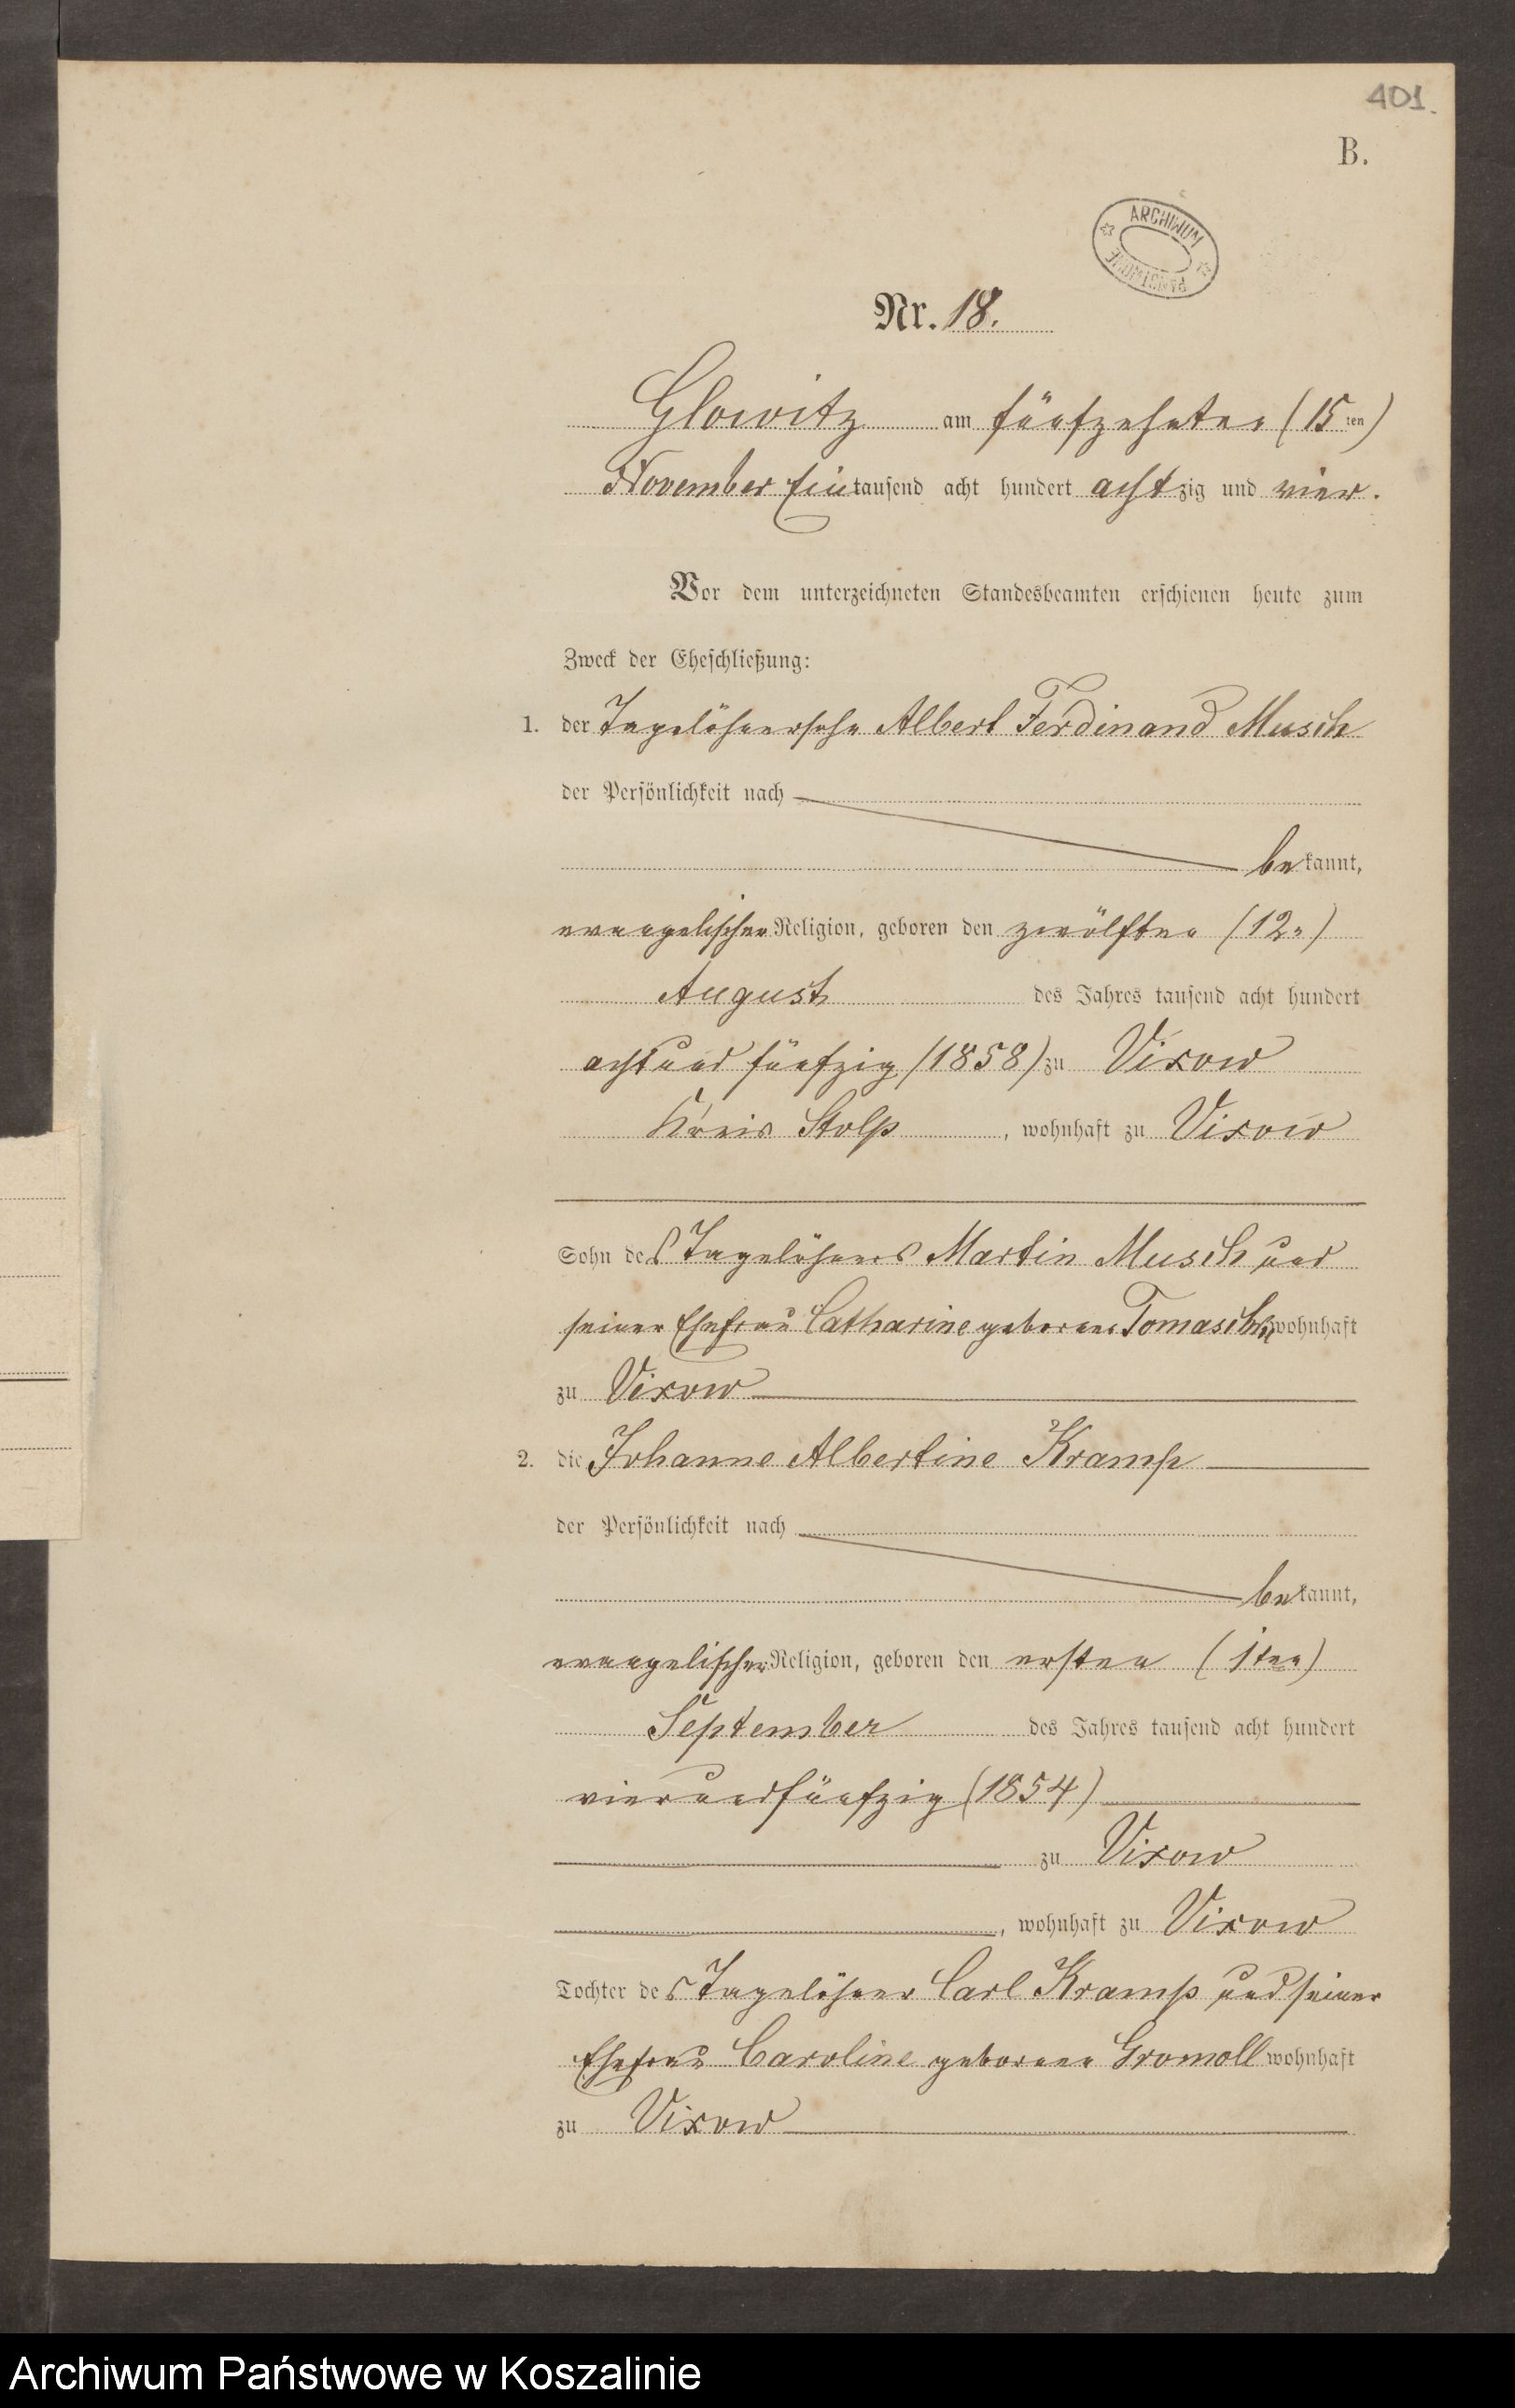 401.
B.
ARCHIWUM
PAŃSTWOWE
Nr. 18.
Glowitz am fünfzehnten (15 ten)
November Eintausend acht hundert achtzig und vier.
Vor dem unterzeichneten Standesbeamten erschienen heute zum
Zweck der Eheschließung:
1. der Tagelöhnersohn Albert Ferdinand Musch
der Persönlichkeit nach
bekannt,
evangelischer Religion, geboren den zwölften (12n)
August des Jahres tausend acht hundert
achtundfünfzig (1858) zu Vixow
Kreis Stolp, wohnhaft zu Vixow
Sohn des Tagelöhners Martin Musch und
seiner Ehefrau Catharine geborene Tomaschke wohnhaft
zu Vixow
2. die Johanne Albertine Kramp
der Persönlichkeit nach
bekannt,
evangelischer Religion, geboren den ersten (1ten)
September des Jahres tausend acht hundert
vierundfünfzig (1854)
zu Vixow
, wohnhaft zu Vixow
Tochter des Tagelöhner Carl Kramp und seiner
Ehefrau Caroline geborenen Gromoll wohnhaft
zu Vixow
Archiwum Państwowe w Koszalinie